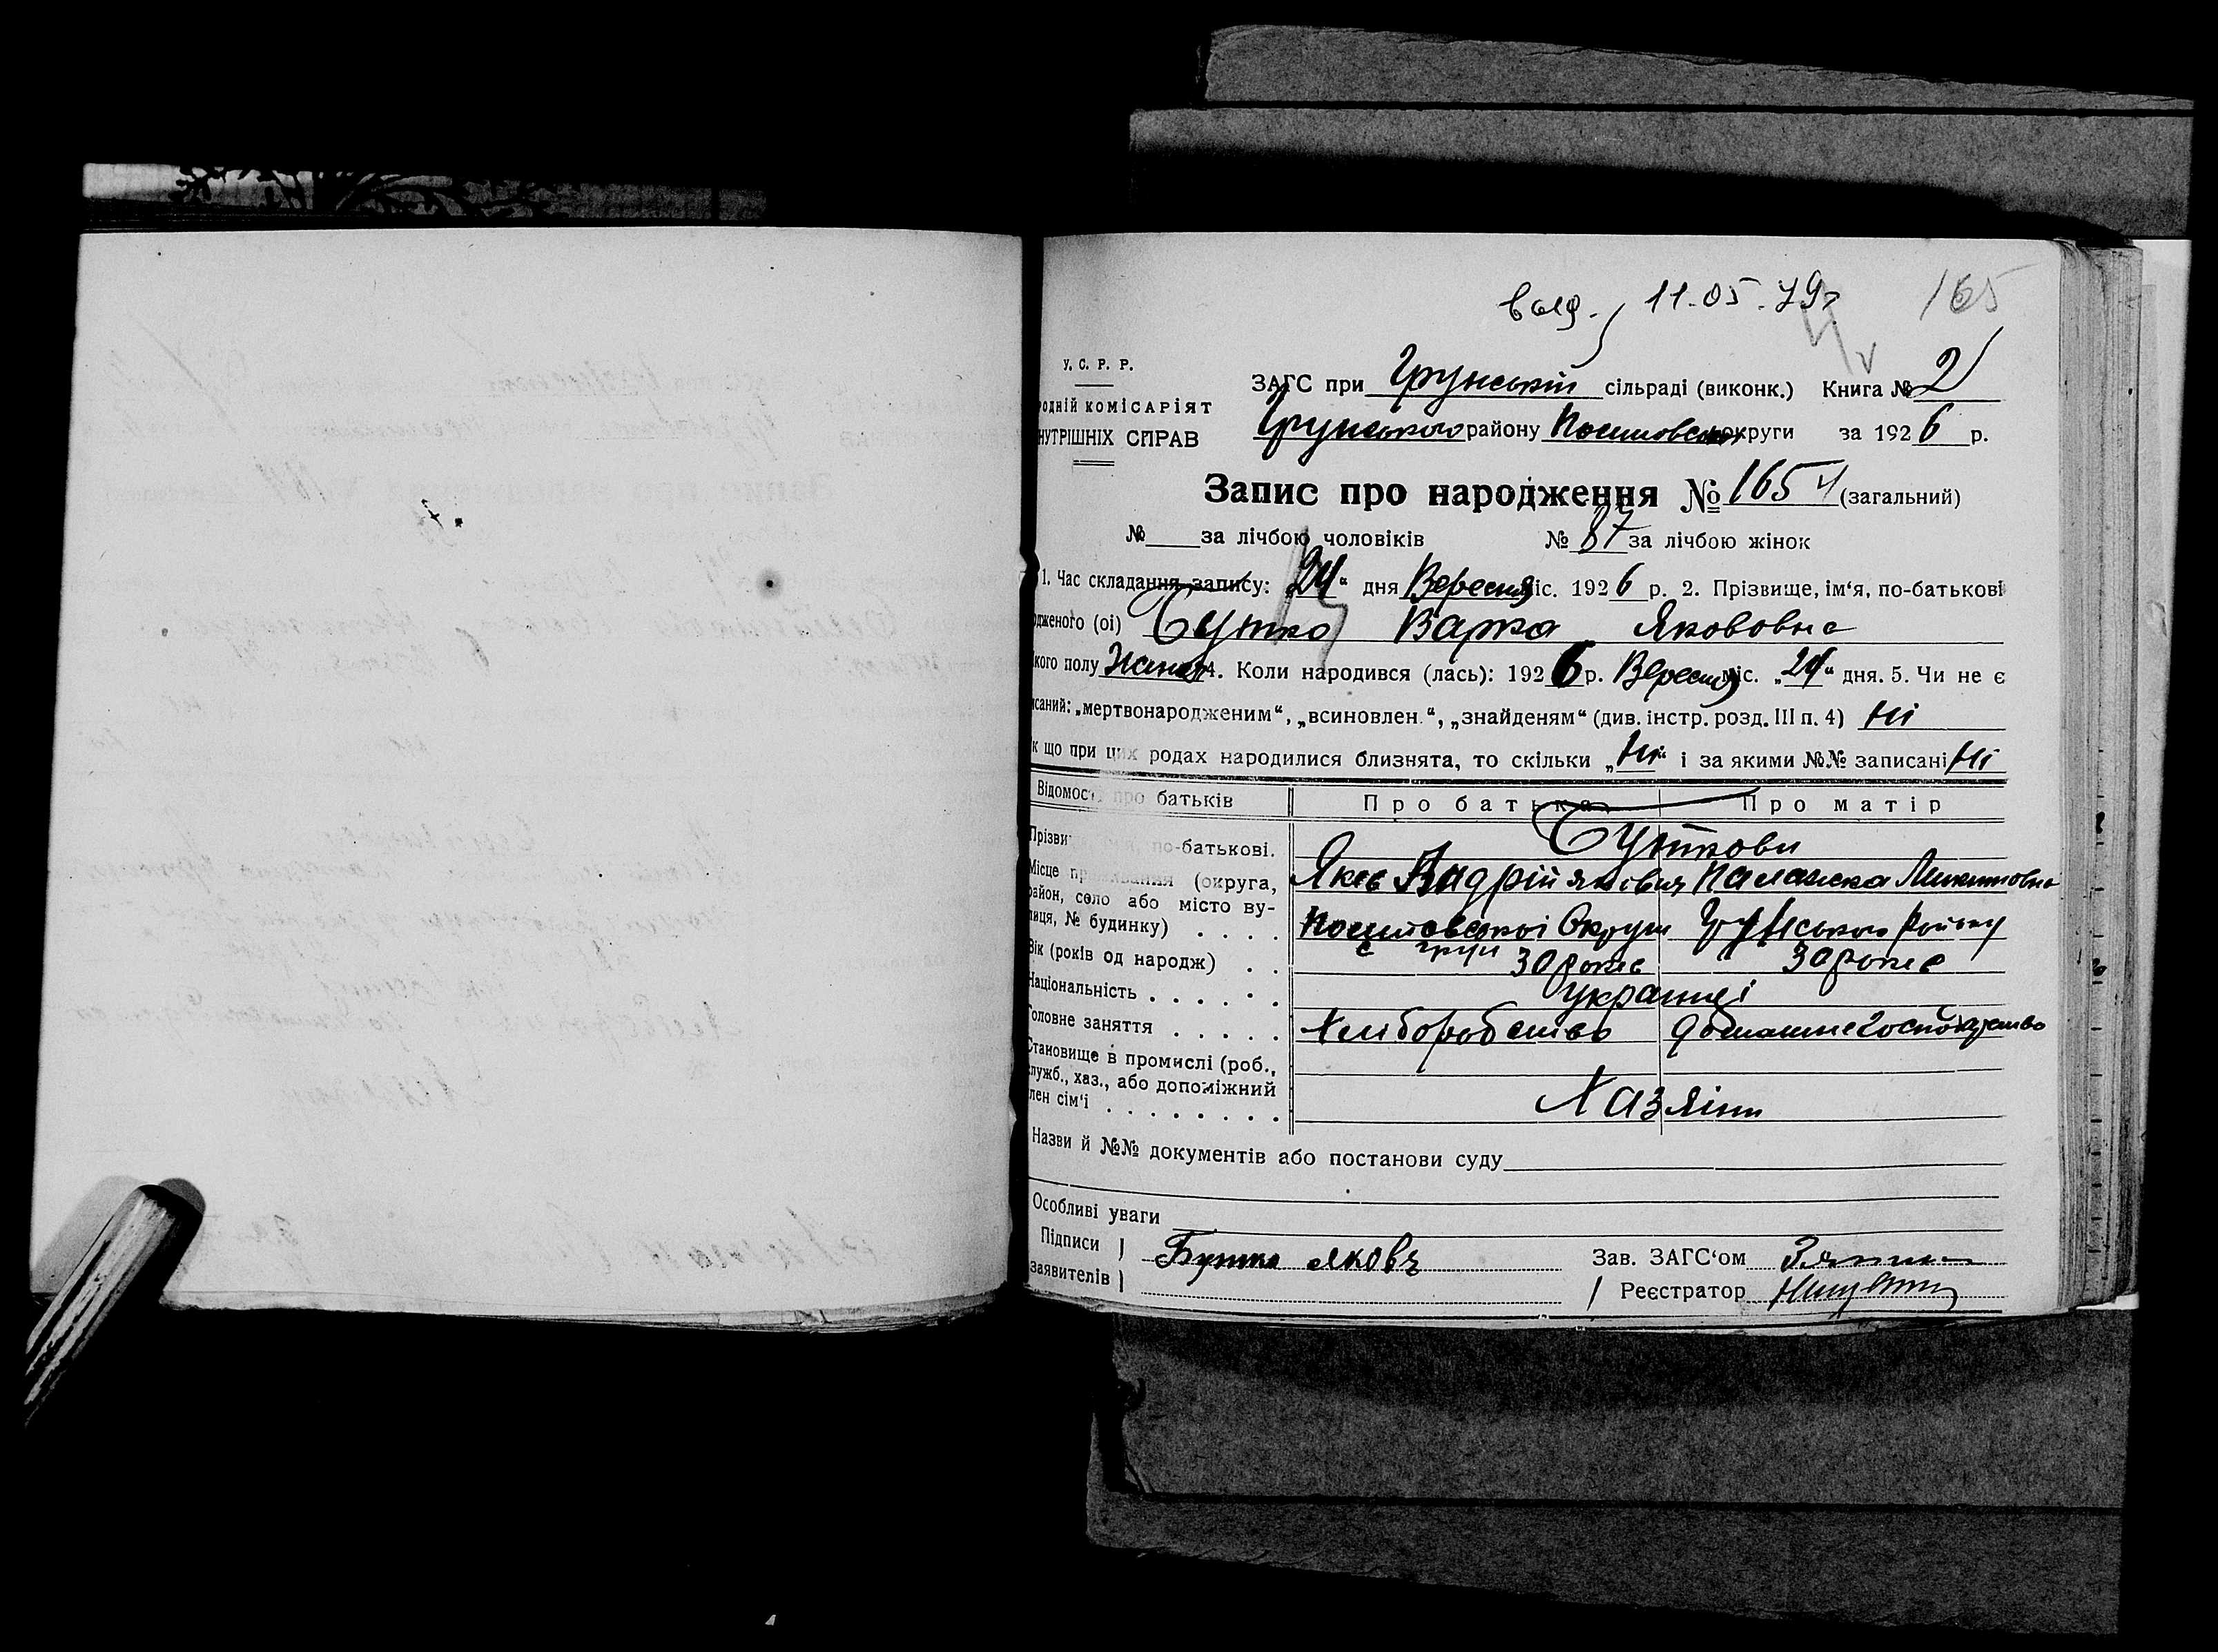 выд. 11.05.79г
165
У. С. Р. Р.
ЗАГС при Грунській сільраді (виконк.) Книга № 2
одній комісаріят
нутрішніх справ
Грунського району округи за 1926 р.
Запис про народження № 165 (загальний)
№ за лічбою чоловіків № 87 за лічбою жінок
1. Час складання запису: „24“ дня Вересня міс. 1926 р. 2. Прізвище, ім‘я, по-батькові
одженого (ої) Бутко Варка Якововна
якого полу 4. Коли народився (лась): 1926 р. Вересня міс. „24“ дня. 5. Чи не є
исаний: „мертвонародженим“, „всиновлен.“, „знайденям“ (див. інстр. розд. III п. 4) Ні
к що при цих родах народилися близнята, то скільки „Ні“ і за якими №№ записані Ні
Відомості про батьків Про батька Про матір
Прізвище, ім‘я, по-батькові. Буткови
Місце проживання (округа, район, село або місто вулиця, № будинку) . . . . Яків Андрійянович Паланска Микитовна
Округи Грунського Району
с Груни
Вік (років од народж) . . 30 років 30 років
Національність . . . . . . українці
Головне заняття . . . . . Хліборобство домашне господарство
Становище в промислі (роб.,
служб., хаз., або допоміжний
член сім‘ї . . . . . . . . Хазяіни
Назви й №№ документів або постанови суду
Особливі уваги
Підписи заявителів Бутко Яковъ
Зав. ЗАГС‘ом
Реєстратор